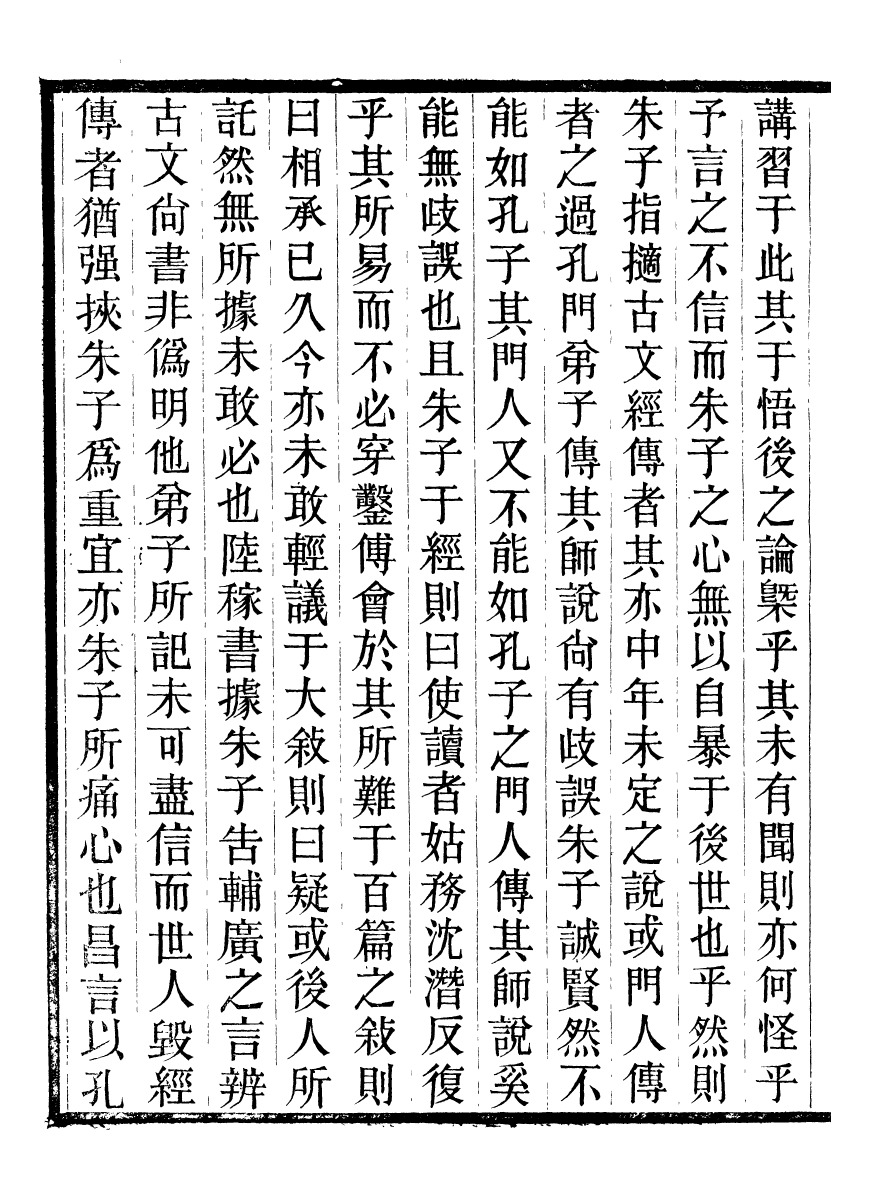 講習于此其于悟後之論槩乎其未有聞則亦何怪乎
予言之不信而朱子之心無以自暴于後世也乎然則
朱子指擿古文經傳者其亦中年未定之說或門人傳
者之過孔門弟子傳其師說尚有歧誤朱子誠賢然不
能如孔子其門人又不能如孔子之門人傳其師說奚
能無歧誤也且朱子于經則曰使讀者姑務沈潛反復
乎其所易而不必穿鑿傅會於其所難于百篇之敘則
曰相承已久今亦未敢輕議于大敘則曰疑或後人所
託然無所據未敢必也陸稼書據朱子告輔廣之言辨
古文尚書非僞明他弟子所記未可盡信而世人毀經
傳者猶强挾朱子爲重宜亦朱子所痛心也昌言以孔